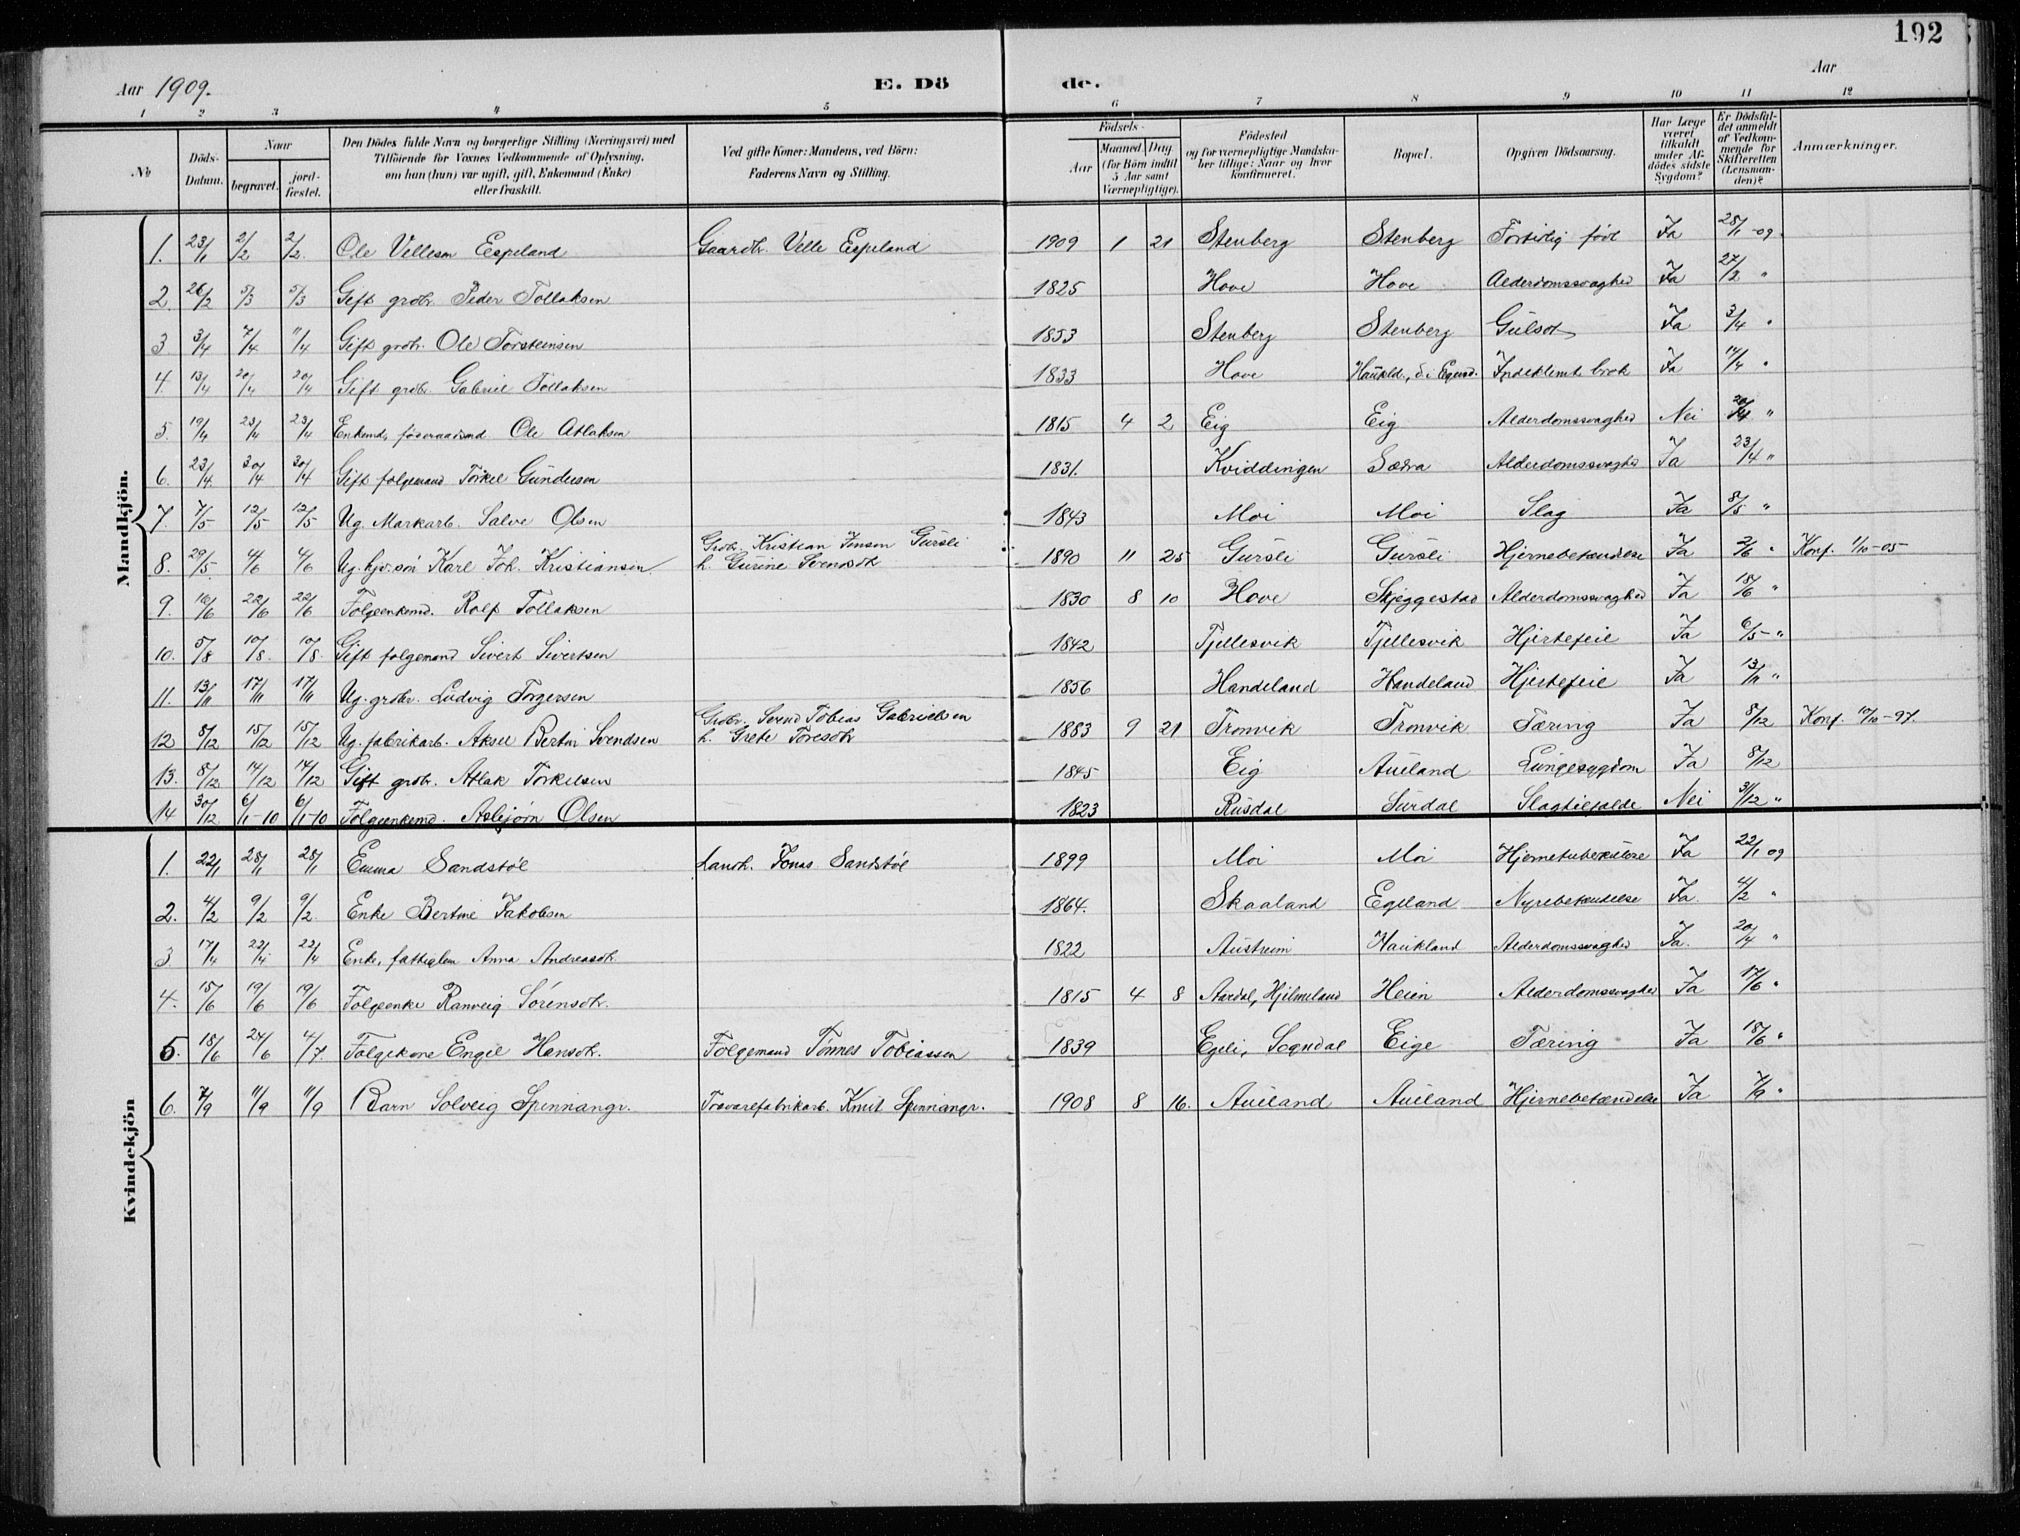 192
Aar 1909. E. Dö de. Aar
1 2 3 4 5 6 7 8 9 10 11 12
No Döds-Datum. Naar begravet. jord-fæstet. Den Dödes fulde Navn og borgerlige Stilling (Næringsvei) med Tilföiende for Voxnes Vedkommende af Oplysning, om han (hun) var ugift, gift, Enkemand (Enke) eller fraskilt. Ved gifte Koner: Mandens, ved Börn: Faderens Navn og Stilling. Födsels- Aar Maaned. Dag. (for Börn indtil 5 Aar samt Værnepligtige). Födested og for værnepligtige Mandskaber tillige: Naar og hvor konfirmeret. Bopæl. Opgiven Dödsaarsag. Har Læge været tilkaldt under Afdödes sidste Sygdom? Er Dödsfaldet anmeldt af Vedkommende for Skifteretten (Lensmanden)? Anmærkninger.
Mandkjön.
1. 23/1 2/2 2/2. Ole Velleson Espeland Gaardbr. Velle Espeland 1909 1 21 Stenberg Stenberg Fortidlig født Ja 25/1 -09.
2. 26/2 5/3 5/3 Gift grdbr. Peder Tollaksen 1825 Hove Hove Alderdomssvaghed Ja 27/2 "
3. 3/4 7/4 11/4 Gift grdbr. Ole Torsteinsen 1853 Stenberg Stenberg Gulsot Ja 3/4 "
4. 13/4 20/4 20/4 Gift grdbr. Gabriel Tollaksen 1833 Hove Haukld., Egersd. Indeklemt brok Ja 14/4 "
5. 19/4 23/4 23/4 Enkemd, føderaadsmd. Ole Atlaksen 1815 4 2 Eig Eig Alderdomssvaghed Nei 20/4 "
6. 23/4. 30/4 30/4 Gift folgemand Torkel Gundersen 1831. Kviddingen Sædra Alderdomssvaghed Ja 23/4 "
7. 7/5 12/5 12/5 Ug. Markarb. Salve Olsen 1843 Moi Moi Slag Ja 8/5 "
8. 29/5. 4/6 4/6 Ug. hjv. søn Karl Joh. Kristiansen. Grdbr. Kristian Jensen Gursli h. Gurine Svendsdt. 1890 11 25 Gursli Gursli Hjernebetændelse Ja 2/6 " Konf. 1/10-05-
9. 16/6 22/6 22/6 Folgeenkemd. Rolf Tollaksen 1830 8 10 Hove Skjeggestad Alderdomssvaghed Ja 18/6 "
10. 5/8 10/8. 10/8. Gift folgemand Sivert Sivertsen 1842 Tjellesvik Tjellesvik Hjertefeil Ja 6/5-"
11. 13/11 17/11 17/11 Ug. grdbr. Ludvig Torgersen 1856 Handeland Handeland Hjertefeil Ja 13/11 "
12 8/12 15/12 15/12 Ug. fabrikarb. Aksel Bertin Svendsen Grdbr. Svend Tobias Gabrielsen h. Grete Toresdtr 1883 9 21 Tronvik Tronvik Tæring Ja 8/12 Konf. 10/10-97.
13. 8/12 14/12 14/12 Gift grdbr. Atlak Torkelsen 1845 Eig Aueland Lungesygdom Ja 8/12
14 30/12 6/1-10 6/1-10 Folgeenkemd. Asbjørn Olsen 1823 Rusdal Surdal Slagtilfælde Nei 31/12 "
Kvindekjön
1. 22/1 28/1 28/1 Emma Sandstøl Landh. Jonas Sandstøl 1899 Moi Moi Hjernetuberkulose Ja 22/1 09
2. 4/2 9/2 9/2 Enke Bertine Jakobsen 1864. Skaaland Egeland Nyrebetændelse Ja. 4/2 "
3. 17/4 22/4 22/4 Enke, fattiglem Anna Andreasdt. 1822 Austreim Haukland Alderdomssvaghed Ja. 20/4 "
4. 15/6 19/6 19/6 Folgeenke Ranveig Sörensdtr. 1815 4 8 Aardal, Hjelmeland Heien Alderdomssvaghed Ja 17/6 "
5. 18/6 24/6 4/7 Folgekone Engel Hansdtr. Folgemand Tønnes Tobiassen 1839 Egeli, Sogndal Eige Tæring Ja 18/6 "
6. 7/9 11/9 11/9 Barn Solveig Spinnangr. Trævarefabrikarb. Knut Spinnangr. 1908 8 16. Aueland Aueland Hjernebetændelse Ja 7/9 "